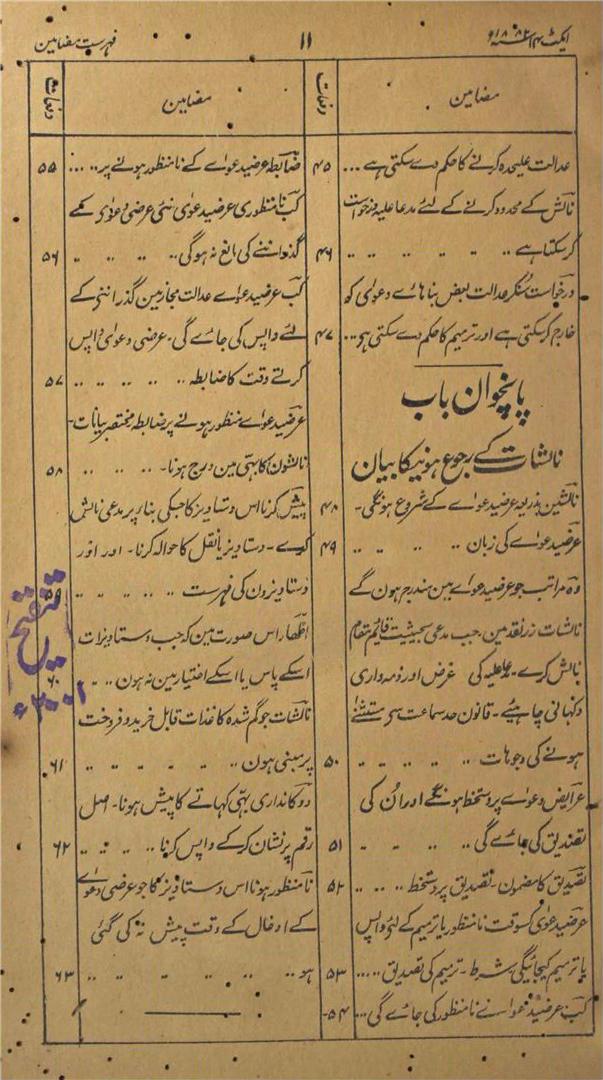 ایکٹ ۱۴ سنہ ۱۸۸۲ء
۱۱
فہرست مضامین
مضامین
دفعات
عدالت علیحدہ کرنے کا حکم دے سکتی ہے ... ۴۵
نالش کے محدود کرنے کے لئے مدعا علیہ درخواست
کرسکتا ہے .. .. .. .. .. ۴۶
درخواست سنکر عدالت بعض بناہاے دعوای کو
خارج کرسکتی ہے اور ترمیم کا حکم دے سکتی ہے ... ۴۷
پانچوان باب
نالشات کے رجوع ہونیکا بیان
نالشین بذریعہ عرضیدعواے کے شروع ہونگی - ۴۸
عرضیدعواے کی زبان .. .. .. .. ۴۹
وہ مراتب جو عرضیدعواے مین مندرج ہون گے
نالشات زرنقد مین . جب مدعی بحیثیت قائم مقام
نالش کرے - مدعاعلیہ کی غرض اور ذمہ داری
دکھانی چاہیے - قانون حد سماعت سے مستثنے
ہونے کی وجوہات .. .. .. .. .. ۵۰
عرایض دعواے پر دستخط ہونگے اور ان کی
تصدیق کی جاے گی .. .. .. .. ۵۱
تصدیق کا مضمون - تصدیق پر دستخط .. .. .. ۵۲
عرضیدعوی کسوقت نامنظور یا ترمیم کے لئے واپس
یا ترمیم کیجائیگی شرط - ترمیم کی تصدیق ..... ۵۳
کب عرضیدعواے نامنظور کی جاے گی ... ۵۴-
مضامین
دفعات
ضابطہ عرضیدعواے کے نامنظور ہونے پر ..... ۵۵
کب نامنظوری عرضیدعوای نئی عرضی دعوای کے
گذراننے کی مانع نہ ہوگی .. .. .. .. ۵۶
کب عرضیدعواے عدالت مجاز مین گذراننی کے
لئے واپس کی جاے گی - عرضی دعوای واپس
کرتے وقت کا ضابطہ .. .. .. .. .. ۵۷
عرضیدعواے منظور ہونے پر ضابطہ مختصر بیانات -
نالشون کا بہی مین درج ہونا - .. .. .. ۵۸
پیش کرنا اس دستاویز کا جسکی بنا پر مدعی نالش
کرے - دستاویز یا نقل کا حوالہ کرنا - اور اور
دستاویزون کی فہرست .. .. .. .. ..
اظہار اس صورت مین کہ جب دستاویزات
اسکے پاس یا اسکے اختیار مین نہ ہون .. .. ۶۰
نالشات جو گم شدہ کاغذات قابل خرید و فروخت
پر مبنی ہون .. .. .. .. .. ۶۱
دوکانداری بہی کہاتے کا پیش ہونا - اصل
رقم پر نشان کرکے واپس کرنا .. .. .. .. ۶۲
نامنظور ہونا اس دستاویز کا جو عرضی دعواے
کے ادخال کے وقت پیش نہ کی گئی
ہو .. .. .. .. .. .. ۶۳
تنقیح